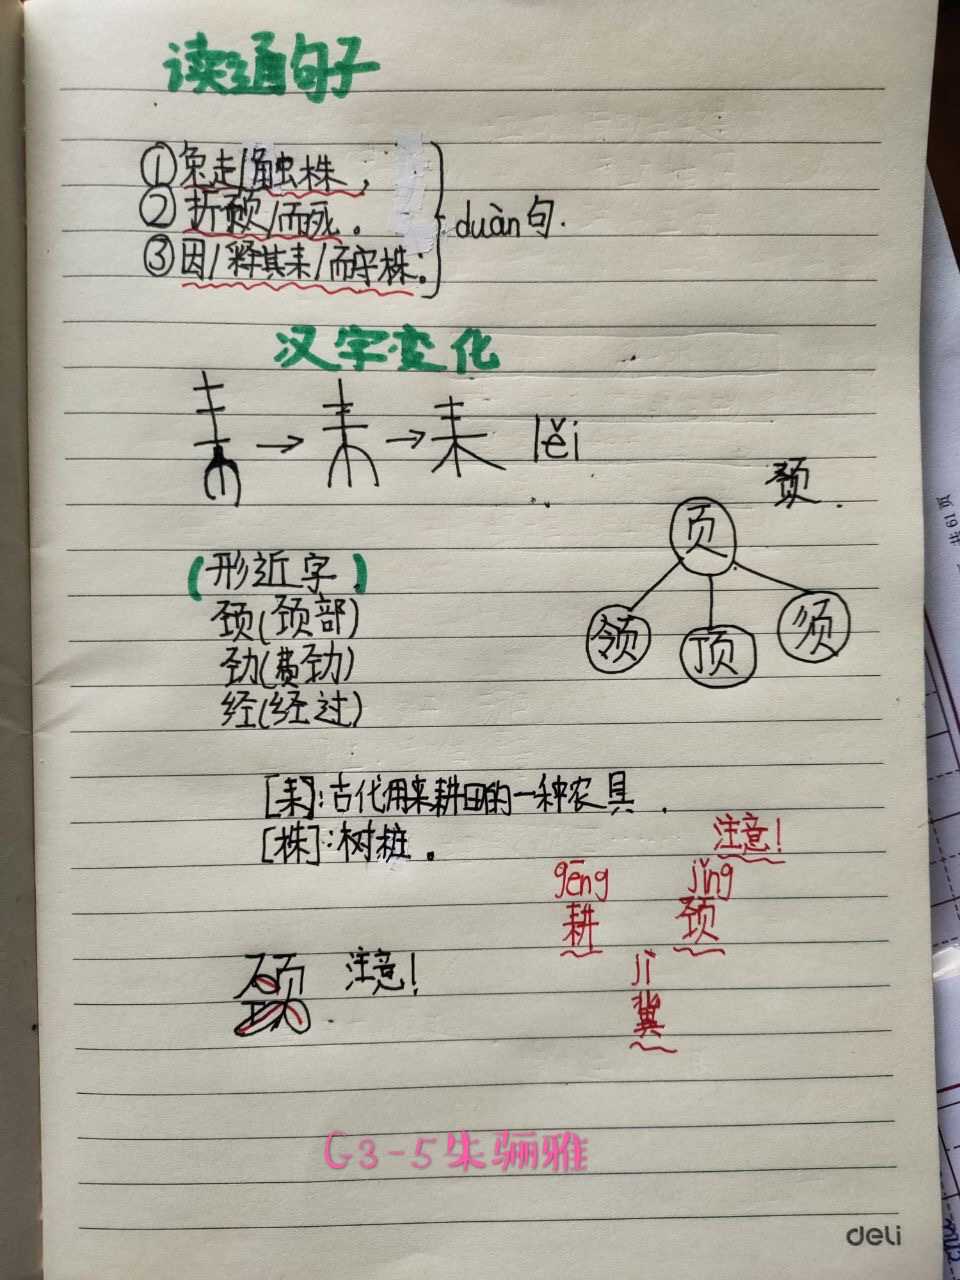 读通句子
①兔走/触株，
②折颈/而死。
③因/释其耒/而守株。
duàn句.
汉字变化
耒 → 耒 → 耒 lěi
颈.
页
领 顶 须
(形近字)
颈(颈部)
劲(费劲)
经(经过)
[耒]:古代用来耕田的一种农具.
[株]:树桩。
注意!
gēng jǐng
耕 颈
颈 注意!
jì
冀
G3-5朱骊雅
deli
共 61 页